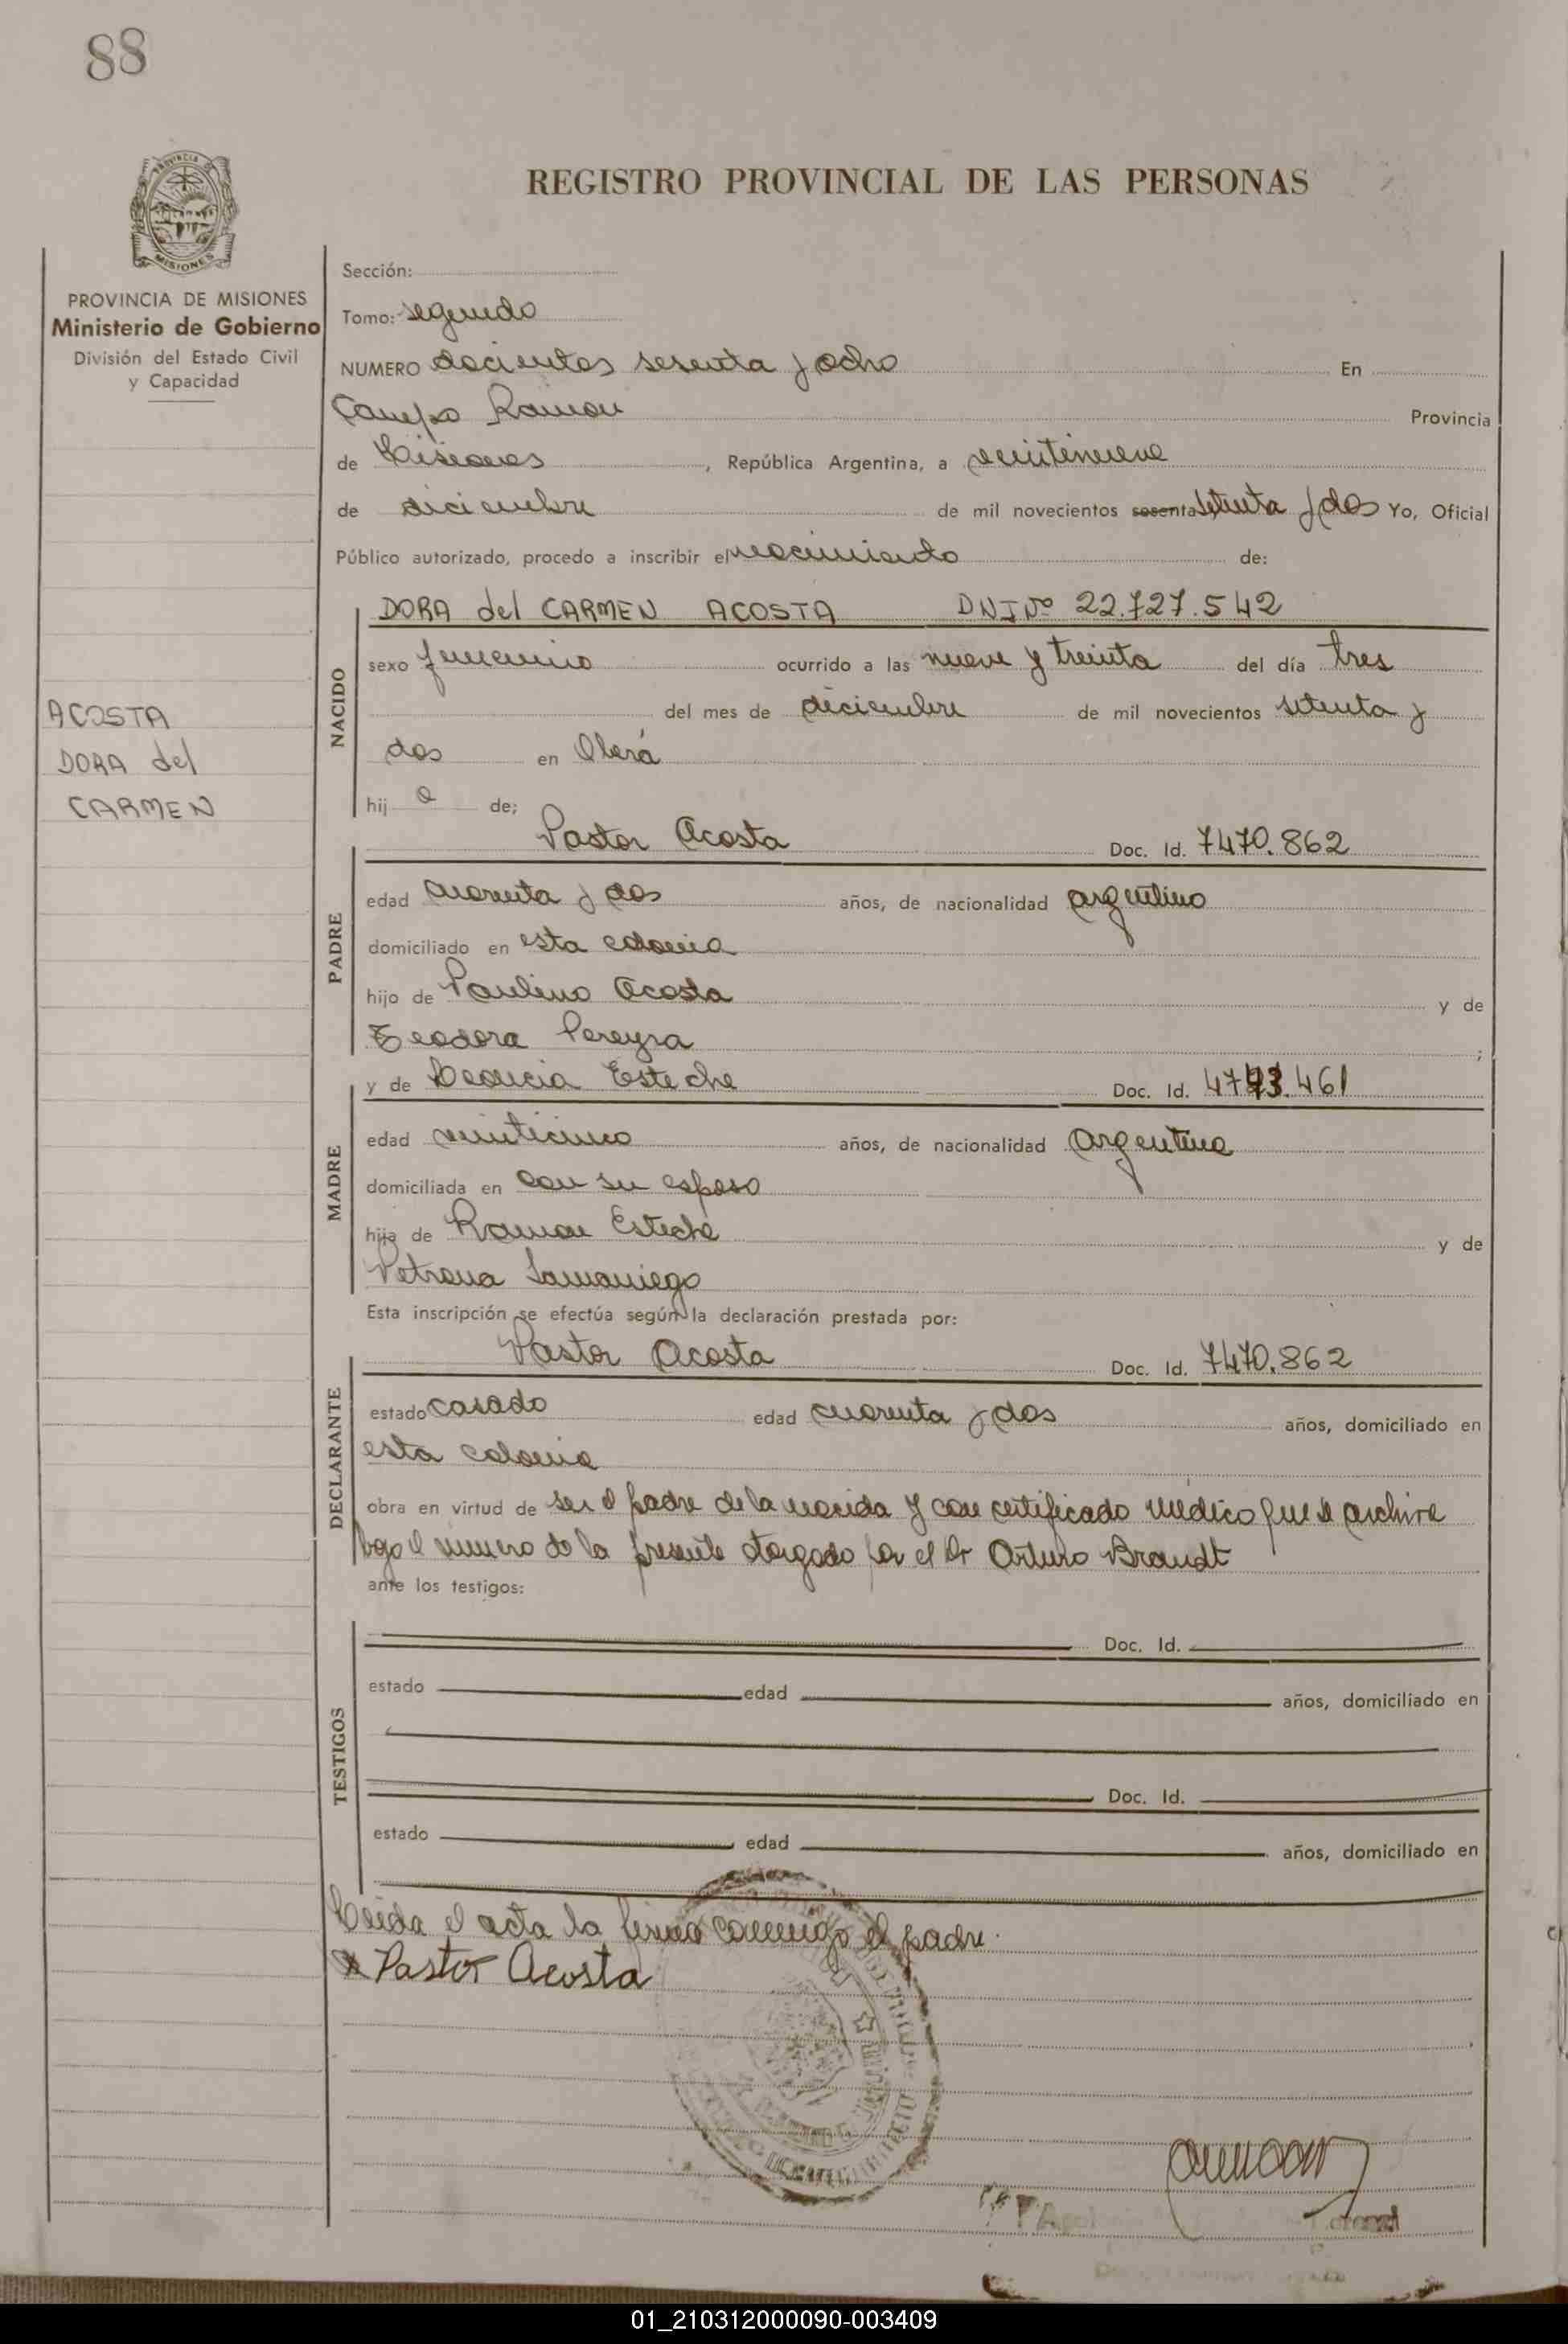 88
REGISTRO PROVINCIAL DE LAS PERSONAS
PROVINCIA DE
MISIONES
PROVINCIA DE MISIONES
Ministerio de Gobierno
División del Estado Civil
y Capacidad
ACOSTA
DORA del
CARMEN
Sección:
Tomo: segundo
NUMERO docientos sesenta y ocho En
Campo Ramon Provincia
de Misiones, República Argentina, a veintinueve
de diciembre de mil novecientos sesenta setenta y dos Yo, Oficial
Público autorizado, procedo a inscribir el nacimiento de:
NACIDO
DORA del CARMEN ACOSTA DNI Nº 22.727.542
sexo femenino ocurrido a las nueve y treinta del día tres
del mes de diciembre de mil novecientos setenta y
dos en Oberá
hij a de;
PADRE
Pastor Acosta Doc. Id. 7470.862
edad cuarenta y dos años, de nacionalidad argentino
domiciliado en esta colonia
hijo de Paulino Acosta y de
Teodora Pereyra ;
MADRE
y de Esteche Doc. Id. 461
edad veinticinco años, de nacionalidad argentina
domiciliada en con su esposo
hija de Ramon Esteche y de
Petrona Samaniego
Esta inscripción se efectúa según la declaración prestada por:
DECLARANTE
Pastor Acosta Doc. Id. 7470.862
estado casado edad cuarenta y dos años, domiciliado en
esta colonia
obra en virtud de ser el padre de la nacida y con certificado médico que se archiva
bajo el número de la presente otorgado por el Dr Arturo Brandt
ante los testigos:
TESTIGOS
Doc. Id.
estado edad años, domiciliado en
Doc. Id.
estado edad años, domiciliado en
Leida el acta la firma conmigo el padre.
Pastor Acosta
01_210312000090-003409